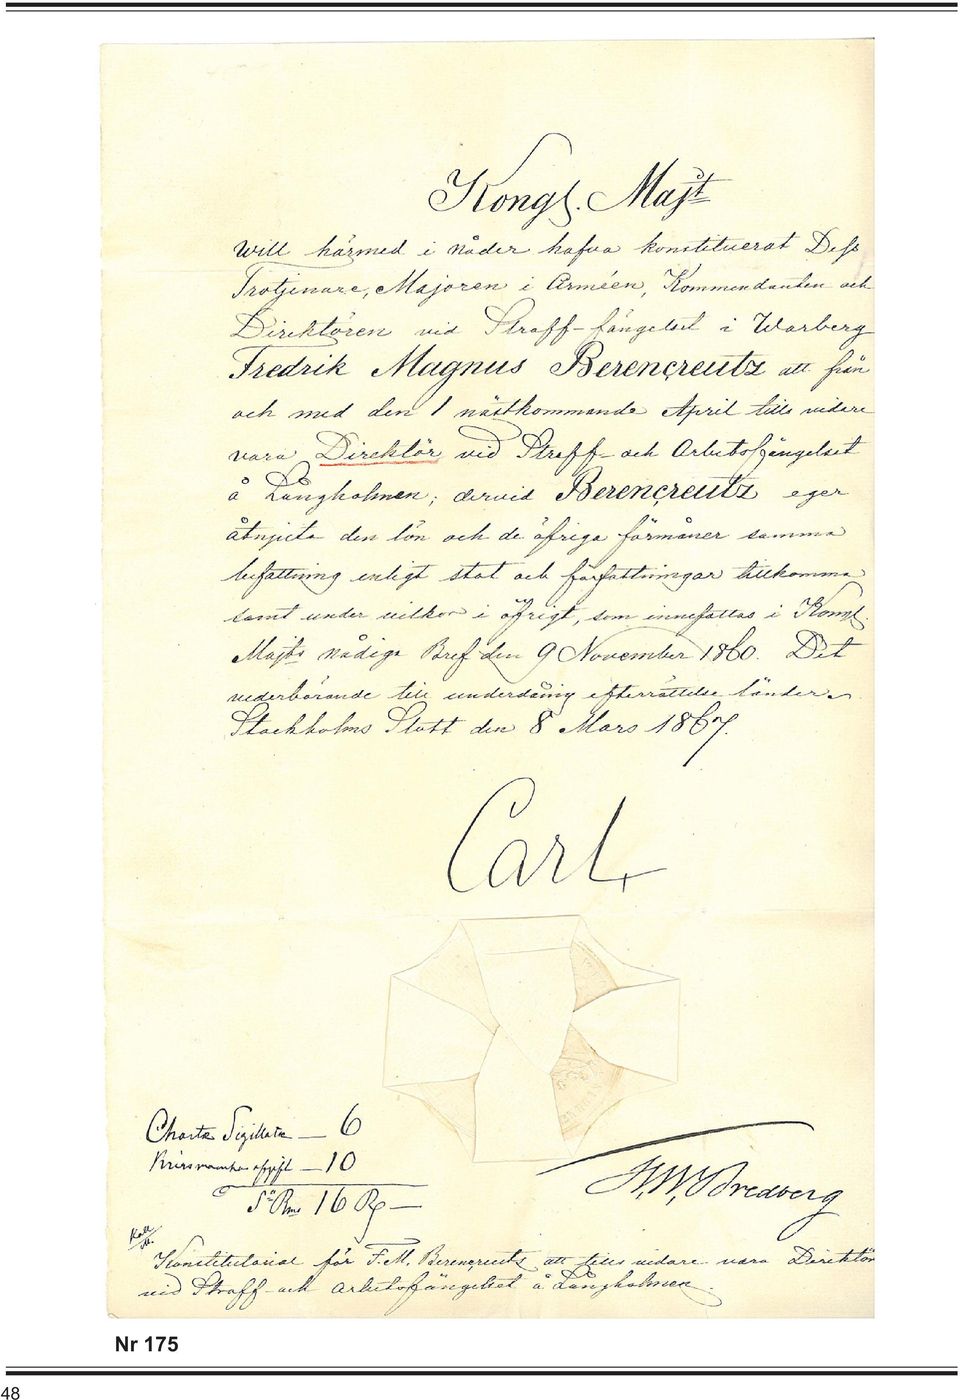 Kongl. Majt
Will härmed i nåder hafva konstituerat Dess
Trotjenare, Majoren i Arméen, Kommendanten och
Direktören vid Straff-fängelset i Warberg
Fredrik Magnus Berencreutz att från
och med den 1 nästkommande April tills vidare
vara Direktör vid Straff- och Arbetsfängelset
å Långholmen; dervid Berencreutz eger
åtnjuta den lön och de öfriga förmåner samma
befattning enligt stat och författningar tillkomma
samt under vilkor i öfrigt, som innefattas i Kongl.
Majts nådiga Bref den 9 November 1860. Det
vederbörande till underdånig efterrättelse länder.
Stockholms Slott den 8 Mars 1867.
Carl
Charta Sigillata — 6
Krigsmanhusafgift — 10
Sa Rmt 16 —
H. W. Bredberg
Konstitutorial för F. M. Berencreutz att tills vidare vara Direktör
vid Straff- och Arbetsfängelset å Långholmen.
Nr 175
48